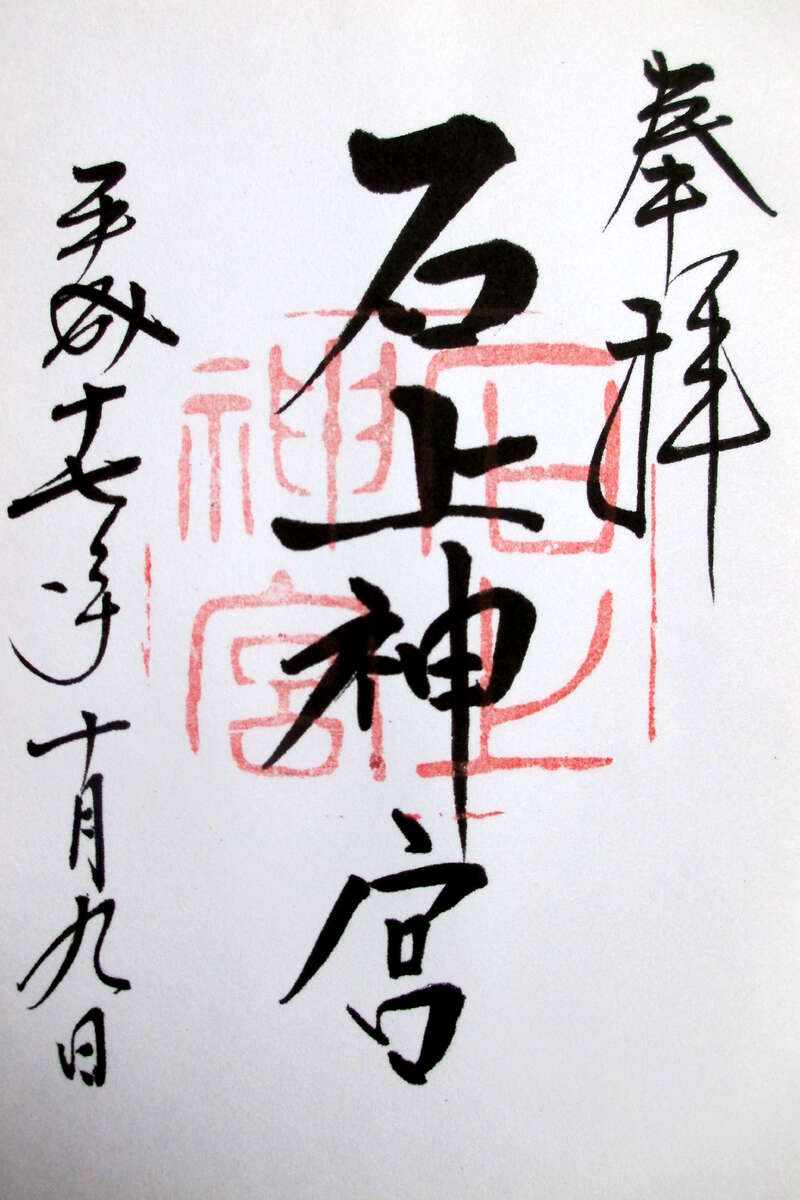 奉拝
石上神宮
石上
神宮
平成十七年十月九日